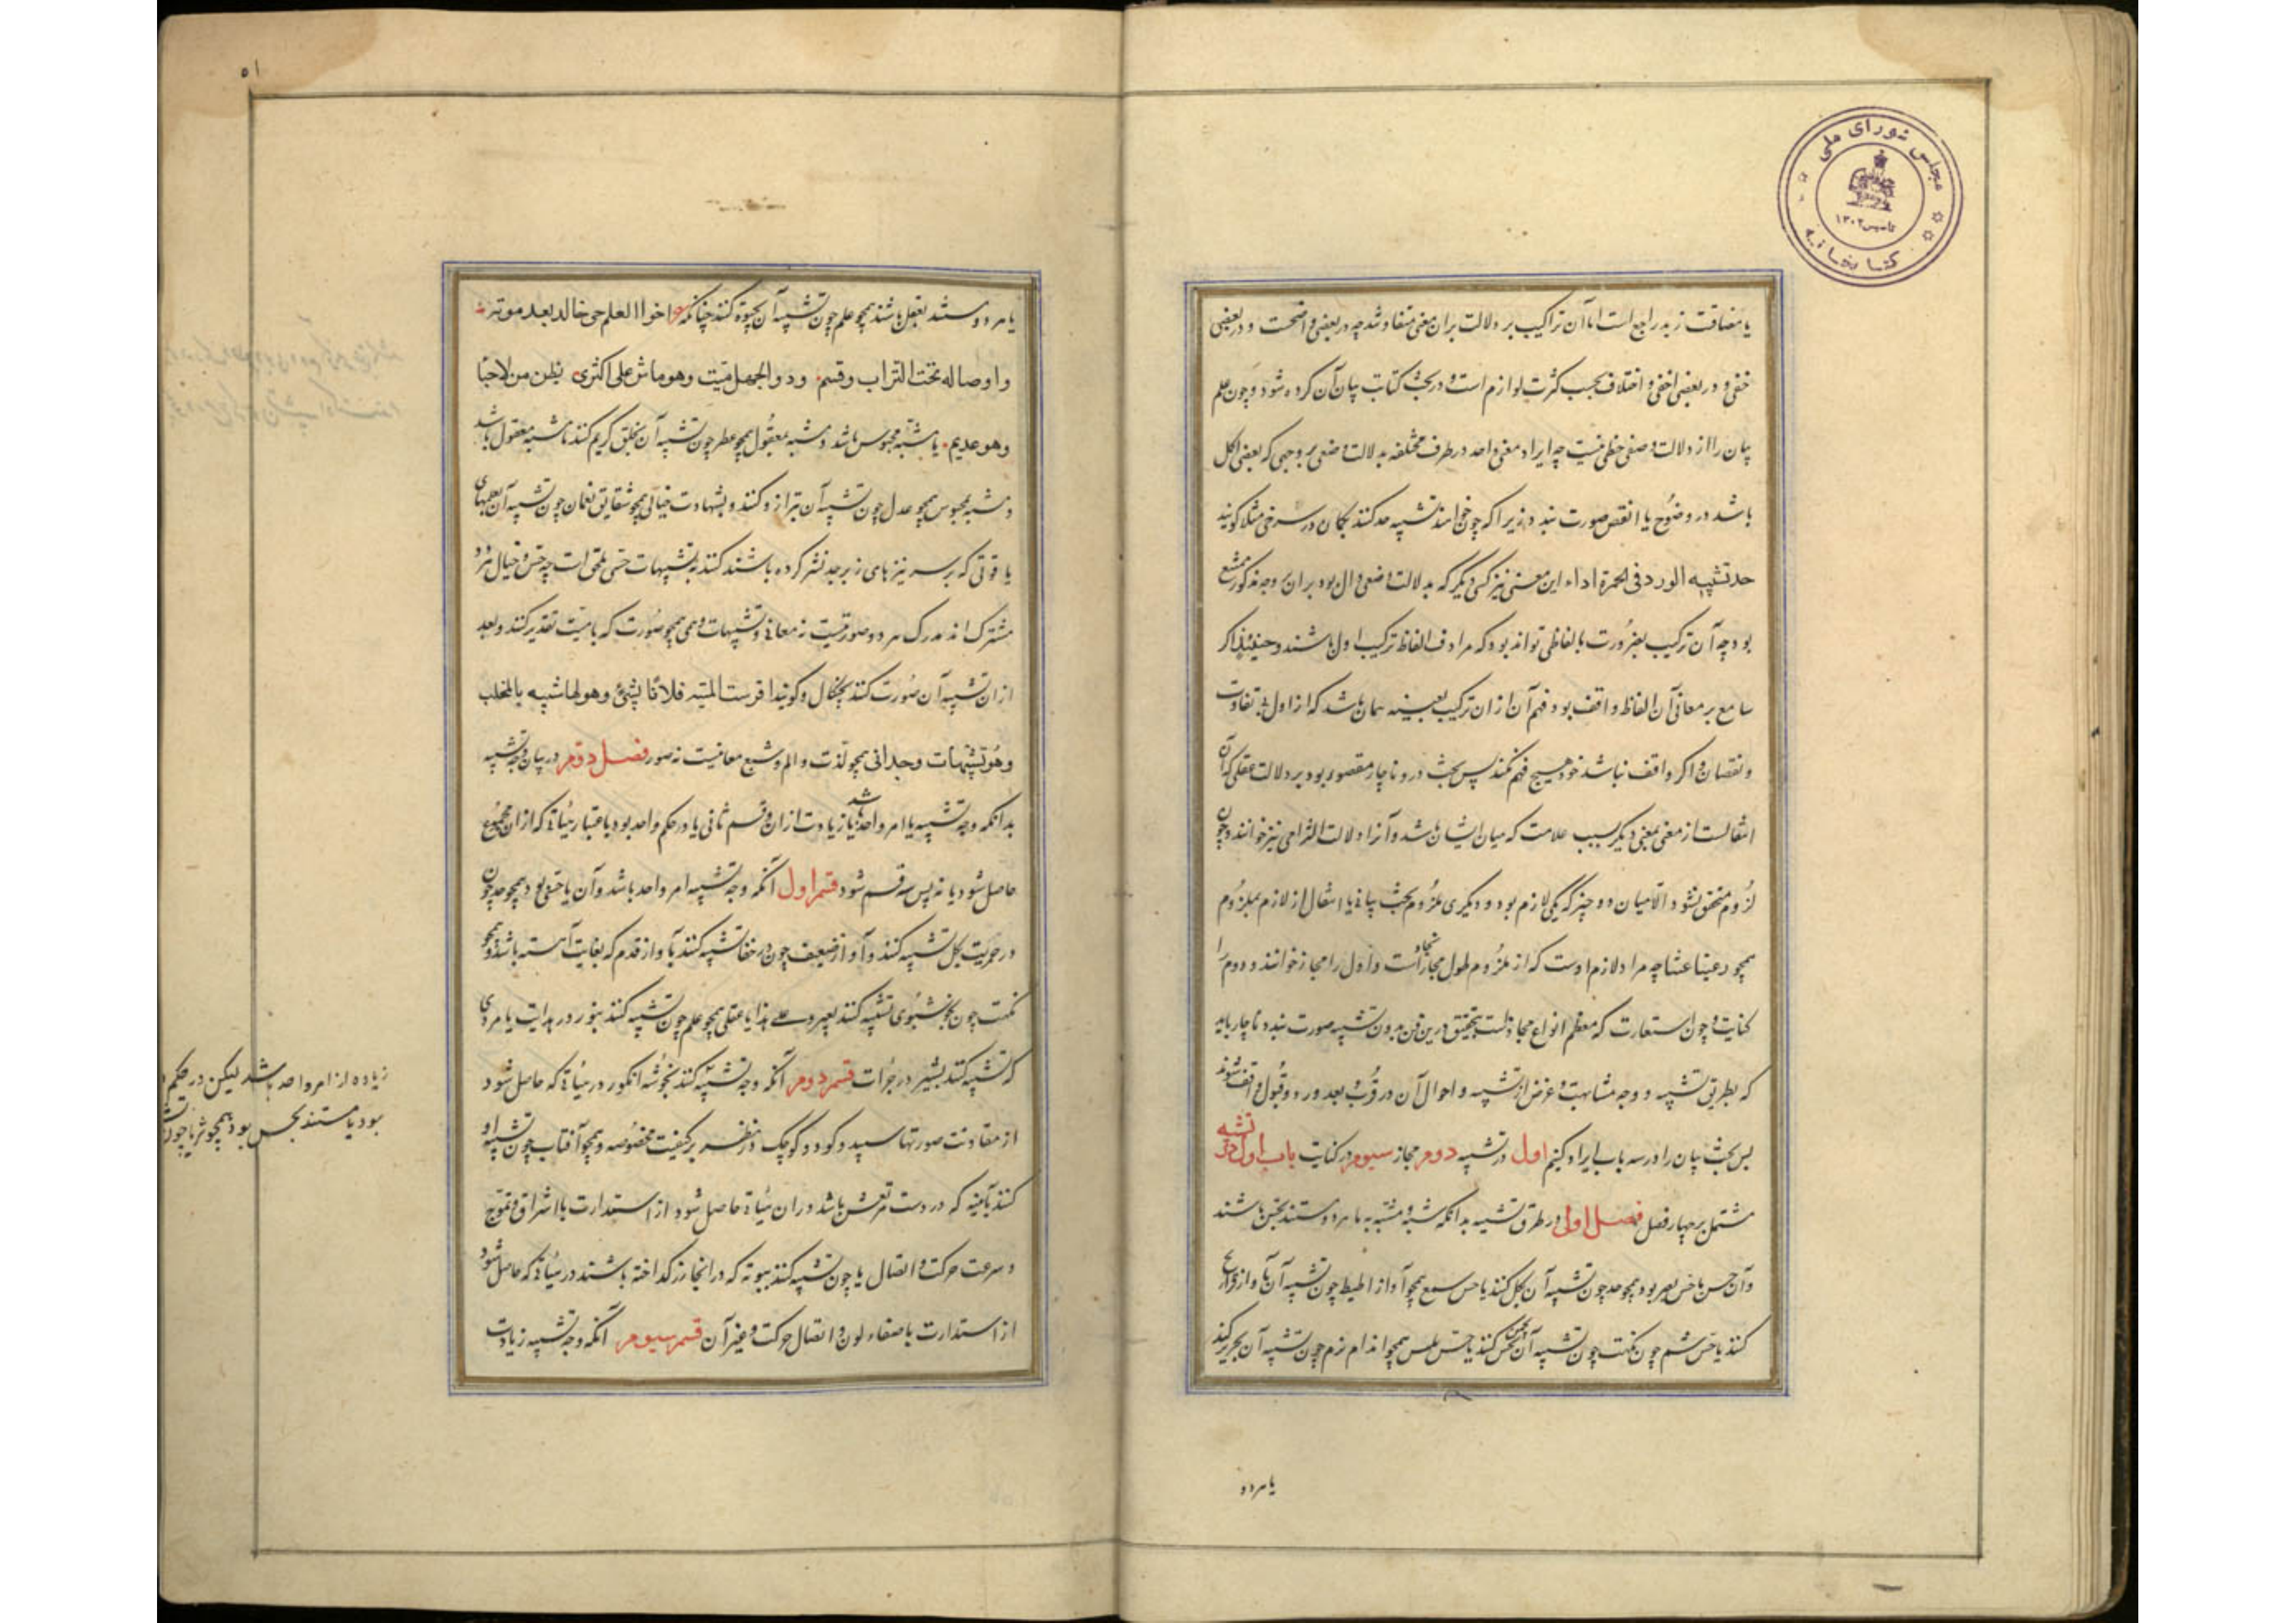 مجلس شورای ملی
کتابخانه
تاسیس ۱۳۰۲
یا مضافت زید راجع است اما آن تراکیب بر دلالت بران معنی متفاوتند چه در بعضی واضحست و در بعضی
خفی و در بعضی اخفی و اختلاف بحسب کثرت لوازم است و در بحث کتابت بیان آن کرده شود و چون علم
بیان را از دلالت وضعی حظی نیست چه ایراد معنی واحد در طرف مختلفه بدلالت وضعی بر وجهی که بعضی اکل
باشد در وضوح یا انقص صورت نبندد زیرا که چون خواهند تشبیه خد کنند بکل در سرخی مثلا کویند
خد تشبیه الورد فی الحمرة اداء این معنی نیز کسی دیگر که بدلالت وضعی دال بود بران وجه مذکور ممتنع
بود چه آن ترکیب بضرورت بالفاظی تواند بود که مرادف الفاظ ترکیب اول باشند و حینئذ اکر
سامع بر معانی آن الفاظ واقف بود فهم آن ازان ترکیب بعینه همان باشد که از اول بی تفاوت
و نقصان و اکر واقف نباشد خود هیچ فهم نکند پس بحث درو ناچار مقصور بود بر دلالت عقلی که آن
انتقالست از معنی بمعنی دیگر بسبب علامت که میان ایشان باشد و آنرا دلالت التزامی نیز خوانند و چون
لزوم متحقق نشود الا میان دو چیز که یکی لازم بود و دیگری ملزوم بحث بیانی یا انتقال از لازم بملزوم
همچو رعینا غیثا چه مراد لازم اوست که از ملزوم طول نجاد است و اول را مجاز خوانند و دوم را
کنایت و چون استعارت که معظم انواع مجازاست بتحقیق درین فن بدون تشبیه صورت نبندد ناچار باید
که بطریق تشبیه و وجه مشابهت و غرض از تشبیه و احوال آن در قرب و بعد و رد و قبول واقف شوند
پس بحث بیان را در سه باب ایراد کنیم اول در تشبیه دوم مجاز سیوم در کنایت باب اول در تشبیه
مشتمل بر چهار فصل فصل اول در طرق تشبیه بدانکه مشبه و مشبه به یا هر دو مستند بحس باشند
و آن حس یا حس بصر بود همچو خد چون تشبیه آن بکل کنند یا حس سمع همچو آواز اطیط چون تشبیه آن بآواز فراریج
کنند یا حس شم چون نکهت چون تشبیه آن کنند یا حس لمس همچو اندام نرم چون تشبیه آن بحریر کنند
یا هر دو
۵۱
یا هر دو مستند بعقل باشند همچو علم چون تشبیه آن بحیوة کنند چنانکه اخوا العلم حی خالد بعد موته
و اوصاله تحت التراب وقیم ودو الجهل میت وهو ماش علی اکثری یظن من الاحیا
وهو عدیم یا مشبه محسوس باشد و مشبه به معقول همچو عطر چون تشبیه آن بخلق کریم کنند یا مشبه معقول باشد
و مشبه به محسوس همچو عدل چون تشبیه آن بترازو کنند و تشبیهات خیالی همچو شقایق نعمان چون تشبیه آن بعلمهای
یاقوتی که بر سر نیزهای زبرجد نشر کرده باشند کنند بتشبیهات حسی ملحق است چه حس و خیال هر دو
مشترک اند مدرک هر دو صورتیست نه معانی و تشبیهات وهمی همچو صورت که بامیت تقدیر کنند و بعد
ازان تشبیه آن صورت کنند بچنکال و کویند افرست المنیه فلانا بشئ وهو لها شبیه بالمخلب
و هو تشبیهات وجدانی همچو لذت و الم و شبع معانیست نه صور فصل دوم در بیان وجه تشبیه
بدانکه وجه تشبیه یا امر واحد باشد یا زیادت ازان و قسم ثانی یا در حکم واحد بود باعتبار هیاتی که ازان مجموع
حاصل شود یا نه پس سه قسم شود قسم اول آنکه وجه تشبیه امر واحد باشد و آن یا حسی بود همچو خد چون
در حمریت بکل تشبیه کنند و آواز ضعیف چون در خفا تشبیه کنند بآواز قدم که بغایت آهسته باشد و همچو
نکهت چون بخوشبوی تشبیه کنند بعنبر و علی هذا یا عقلی همچو علم چون تشبیه کنند بنور در هدایت یا مردی
که تشبیه کنند بشیر در جرات قسم دوم آنکه وجه تشبیه کنند بخوشه انکور در هیاتی که حاصل شود
از مقادنت صورتها سپید و کرد و کوچک در نظر بر کیفیت مخصوصه و همچو آفتاب چون تشبیه او
کنند بآینه که در دست مرتعش باشد دران هیاتی حاصل شود از استدارت با اشراق و تموج
و سرعت حرکت و اتصال یا چون تشبیه کنند ببوته که در انجا زر کداخته باشند در هیاتی که حاصل شود
از استدارت با صفاء لون و اتصال حرکت و غیر آن قسم سیوم آنکه وجه تشبیه زیادت
زیاده از امر واحد باشد لیکن در حکم
بود یا مستند بحس بود همچو ثریا چون